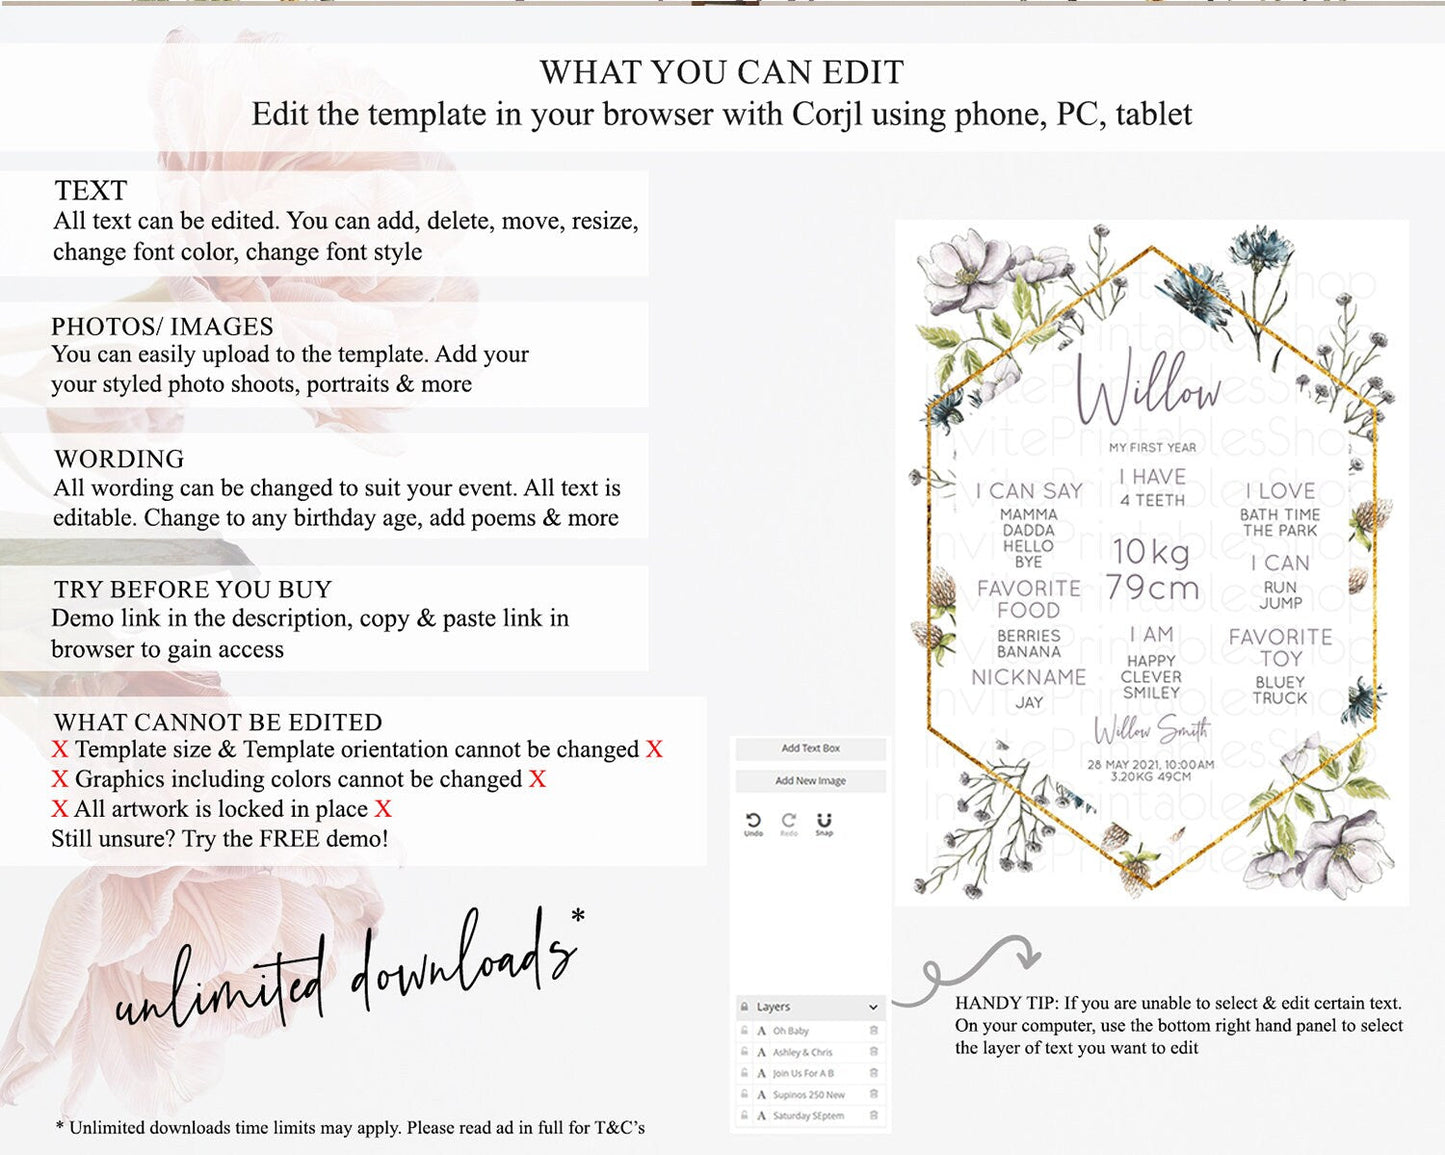 WHAT YOU CAN EDIT
Edit the template in your browser with Corjl using phone, PC, tablet
TEXT
All text can be edited. You can add, delete, move, resize,
change font color, change font style
PHOTOS/ IMAGES
You can easily upload to the template. Add your
your styled photo shoots, portraits & more
WORDING
All wording can be changed to suit your event. All text is
editable. Change to any birthday age, add poems & more
TRY BEFORE YOU BUY
Demo link in the description, copy & paste link in
browser to gain access
WHAT CANNOT BE EDITED
X Template size & Template orientation cannot be changed X
X Graphics including colors cannot be changed X
X All artwork is locked in place X
Still unsure? Try the FREE demo!
unlimited downloads*
* Unlimited downloads time limits may apply. Please read ad in full for T&C's
Add Text Box
Add New Image
Undo
Redo
Snap
Layers
A Oh Baby
A Ashley & Chris
A Join Us For A B
A Supinos 250 New
A Saturday SEptem
Willow
MY FIRST YEAR
I CAN SAY
MAMMA
DADDA
HELLO
BYE
FAVORITE
FOOD
BERRIES
BANANA
NICKNAME
JAY
I HAVE
4 TEETH
10kg
79cm
I AM
HAPPY
CLEVER
SMILEY
I LOVE
BATH TIME
THE PARK
I CAN
RUN
JUMP
FAVORITE
TOY
BLUEY
TRUCK
Willow Smith
28 MAY 2021, 10:00AM
3.20KG 49CM
InvitePrintablesShop
HANDY TIP: If you are unable to select & edit certain text.
On your computer, use the bottom right hand panel to select
the layer of text you want to edit